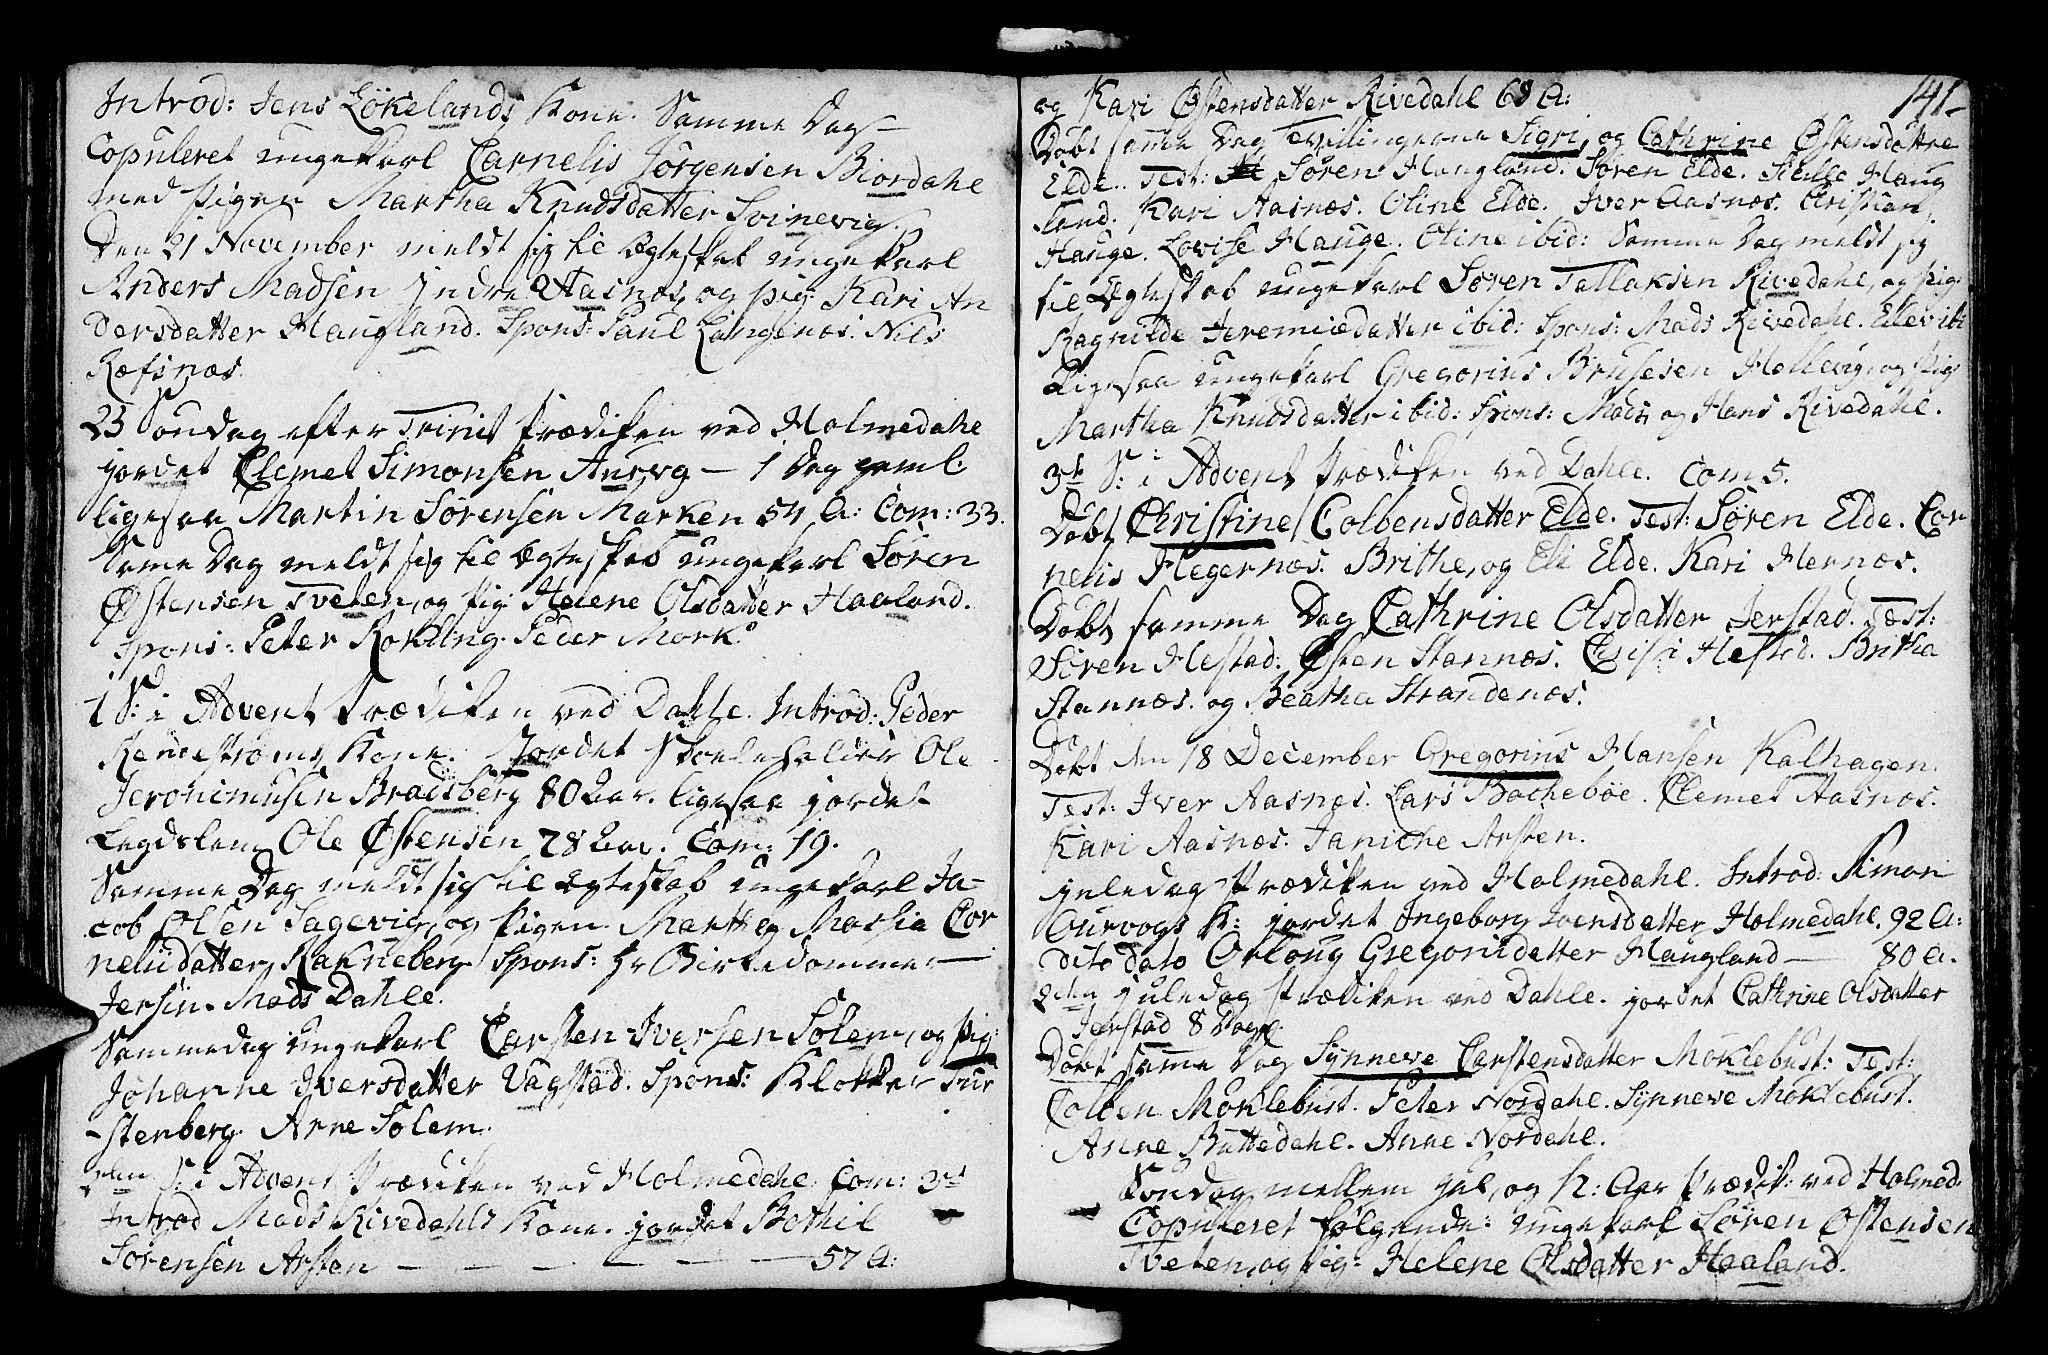 Introd: Jens Lökelands Kone. Samme Dag
Copuleret ungekarl Carnelis Jörgensen Biordahl
med pigen Martha Knudsdatter Svinevig.
Den 21 November meldt sig til Egteskab ungekarl
Anders Madsen Indre Aasnæs, og pig: Kari An
dersdatter Haugland. Spons: Paul Langenæs. Nils
Ræfsnæs.
23 Söndag efter Trinit prædiken ved Holmedahl
jordet Clemet Simonsen 1 Dag geml:
ligesaa Martin Sörensen Marken 54 A: Com: 33.
Same Dag meldt sig til Egteskab ungekarl Sören
Østensen Tveten, og pig: Helene Olsdatter Haaland.
Spons: Peter Peder Mork.
1 S: i Advent prædiken ved Dahle. Introd: Peder
Kone. Jordet Skoeleholder Ole
Jeronimusen Bradsberg 80 Aar. ligesaa jordet
Legdslem Ole Østensen 28 Aar. Com: 19.
Samme Dag meldt sig til Egteskab ungekarl Ja-
cob Olsen Sagevig, og pigen Marthe Maria Cor
nelidatter Rakneberg Spons: Hr Birkedommer
Jersin. Mads Dahle.
Sammedag ungekarl Carsten Iversen Solem, og pig:
Johanne Iversdatter Vagstad. Spons: Klokker Für
-stenberg. Arne Solem.
2den S: i Advent prædiken ved Holmedahl. Com: 3
Introd Mads Rivedahls Kone. jordet Bothil
Sörensen Arsten — — — — — 57 A:
141
og Kari Østensdatter Rivedahl 68 A:
Döbt samme Dag Tvillingerne Sigri, og Cathrine Østensdöttre
Elde. Test: Sören Haugland. Sören Elde. Haug
land. Kari Aasnæs. Oline Elde. Iver Aasnæs. Christian
Hauge. Lovise Hauge. Oline ibid: Samme Dag meldt sig
til Egteskab ungekarl Sören Tollaksen Rivedahl, og pig:
Ragnilde Jeremiædatter ibid: Spons: Mads Rivedahl. Ellev ibi
Ligesaa ungekarl Gregorius Brusesen Hellevig, og pig:
Martha Knudsdatter ibid: Spons: Mads, og Hans Rivedahl.
3de S: i Advent prædiken ved Dahle. Com 5.
Döbt Christine Colbensdatter Elde. Test: Sören Elde. Cor
nelis Hegernæs. Brithe, og Eli Elde. Kari Hernæs.
Döbt samme Dag Cathrine Olsdatter Jerstad. Test:
Sören Hestad. Østen Stannæs. Hestad. Britha
Stannæs. og Beatha Strandenæs.
Döbt den 18 December Gregorius Hansen Kalhagen.
Test: Iver Aasnæs. Lars Bachebøe. Clemet Aasnæs.
Kari Aasnæs. Janiche Arsten.
Juledag prædiken ved Holmedahl. Introd: Simon
K: jordet Ingeborg Iversdatter Holmedahl. 92 A:
dito dato Orloug Gregorisdatter Haugland — 80 A.
2den Juledag prædiken ved Dahle. jordet Cathrine Olsdatter
Jerstad 8 Dage.
Döbt same Dag Synneve Carstensdatter Möklebust: Test:
Colben Möklebust. Peter Nordahl. Synneve Möklebust.
Anne Buttedahl. Anne Nordahl.
Söndag mellem Jul, og N: Aar prædik: ved Holmed:
Copuleret følgende: ungekarl Sören Østensen
Tveten, og pig: Helene Olsdatter Haaland.